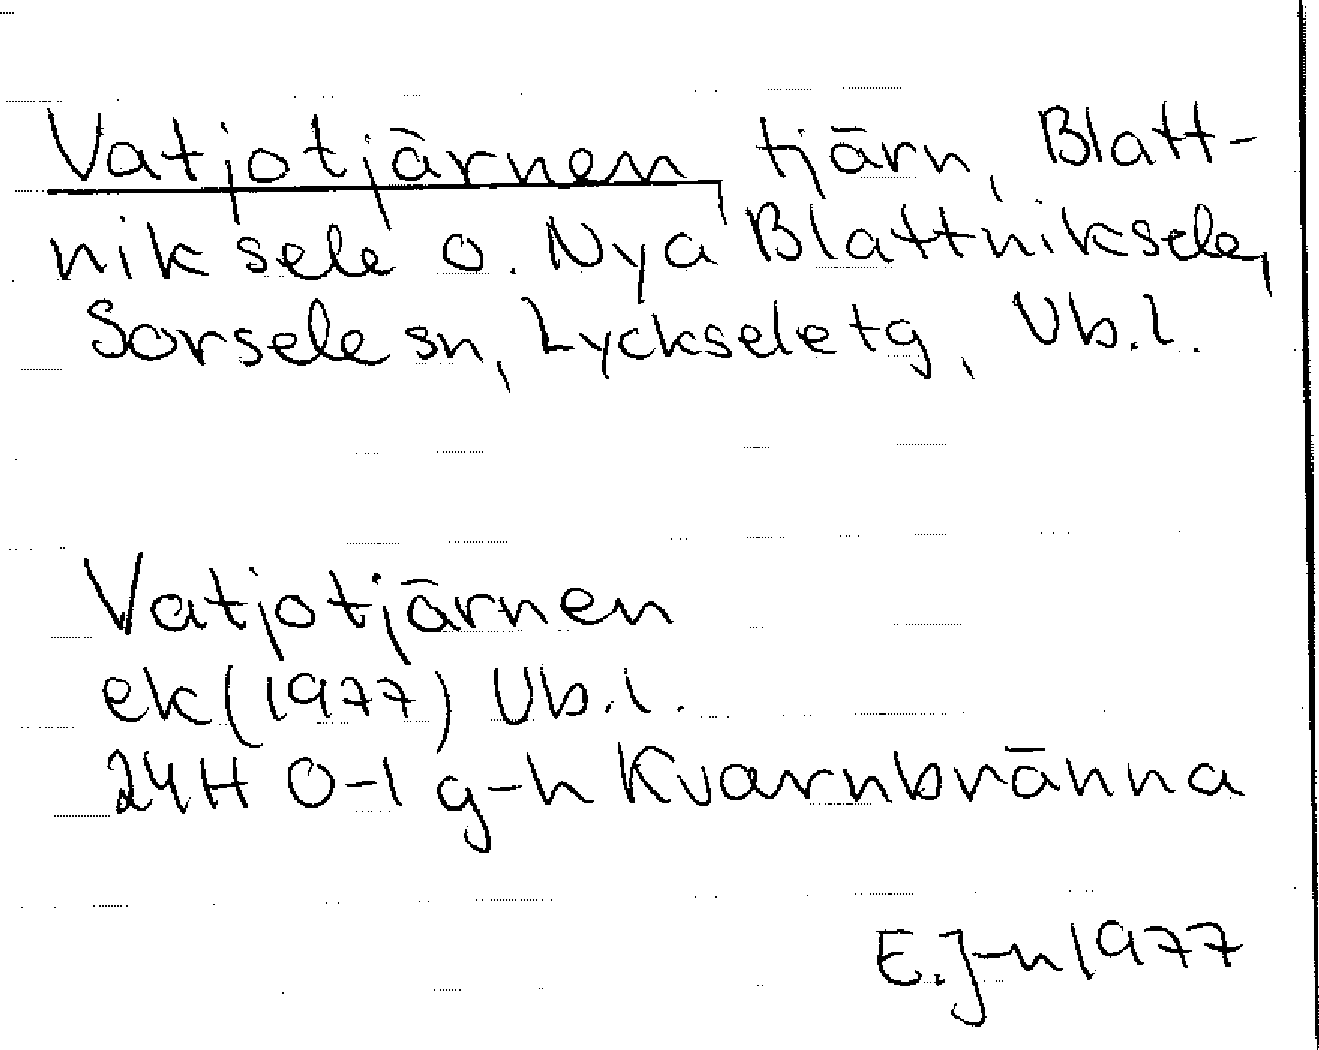 Vatjotjärnen, tjärn, Blatt-
niksele o. Nya Blattniksele,
Sorsele sn, Lycksele tg, Vb.l.
Vatjotjärnen
ek (1977) Vb.l.
24H 0-1 g-h Kvarnbränna
E.J-n 1977